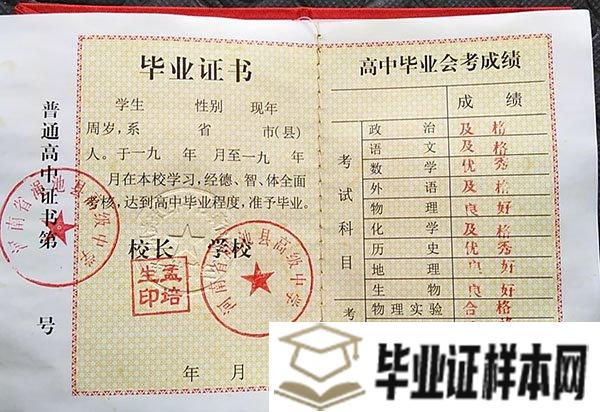 普通高中证书第 号
毕业证书
学生 性别 现年
周岁，系 省 市(县)
人。于一九 年 月至一九 年
月在本校学习，经德、智、体全面
考核，达到高中毕业程度，准予毕业。
校长 学校
年 月
河南省渑池县高级中学
孟培生印
河南省渑池县高级中学
高中毕业会考成绩
成绩
考试科目
政治 及格
语文 及格
数学 优秀
外语 及格
物理 良好
化学 及格
历史 优秀
地理 良好
生物 良好
考
物理实验 合格
毕业证样本网